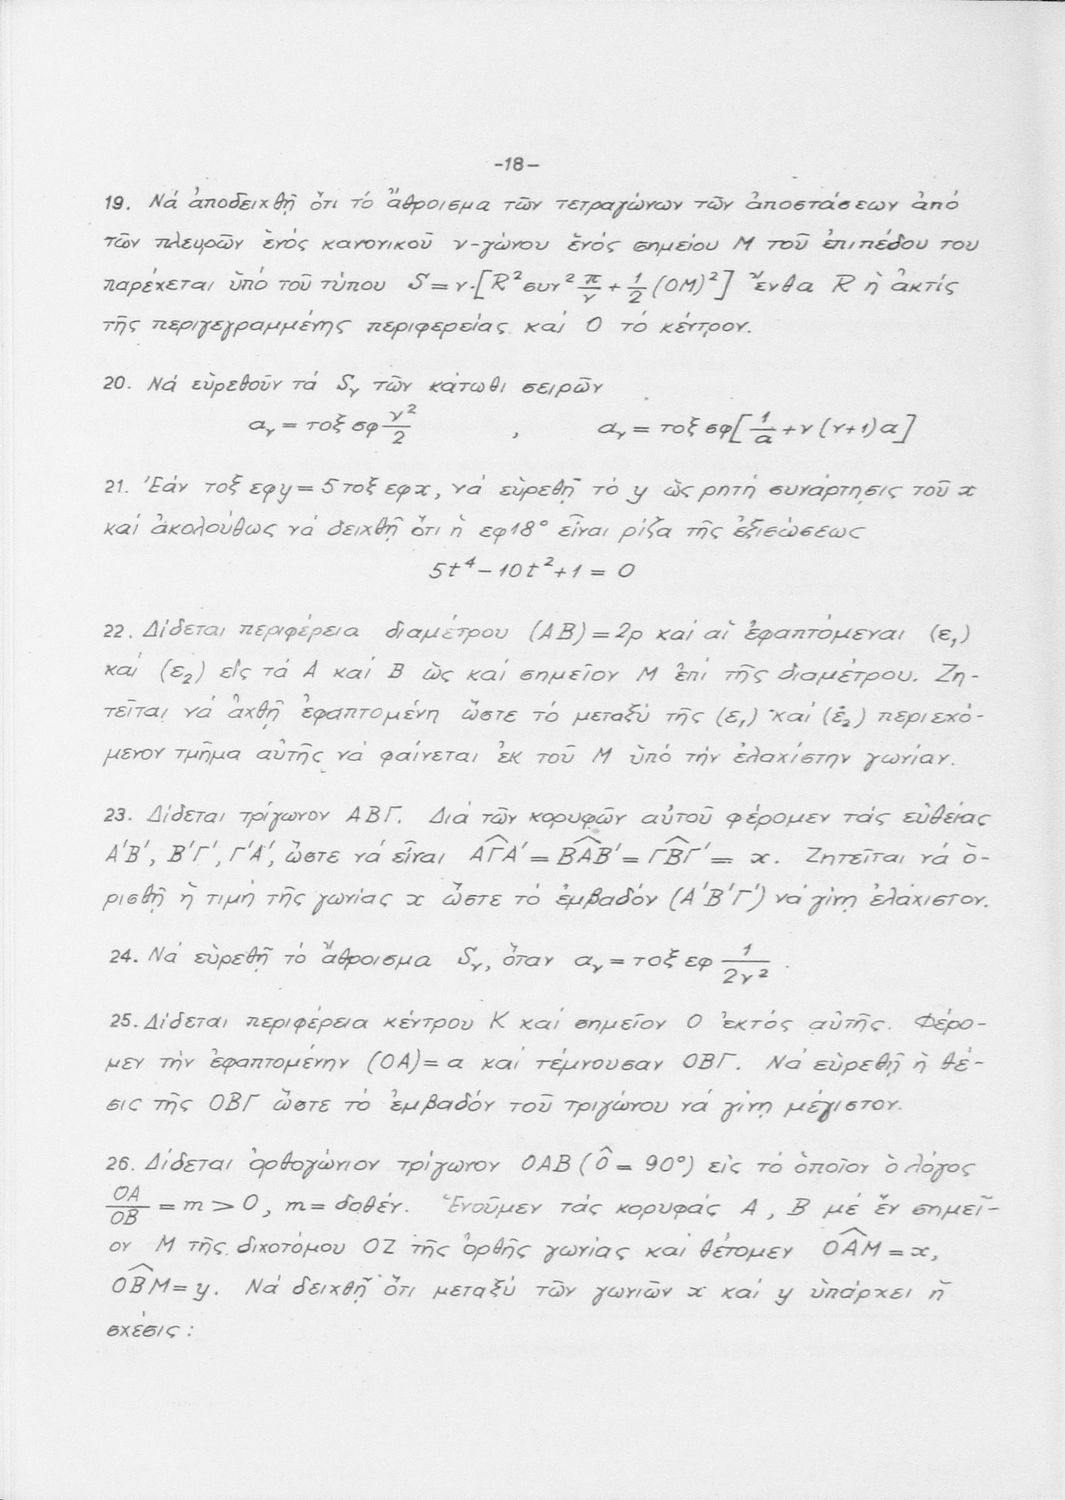 -18-
19. Νά ἀποδειχθῇ ὅτι τό ἄθροισμα τῶν τετραγώνων τῶν ἀποστάσεων ἀπό
τῶν πλευρῶν ἑνός κανονικοῦ ν-γώνου ἑνός σημείου Μ τοῦ ἐπιπέδου του
παρέχεται ὑπό τοῦ τύπου S = ν·[R² συν² π/ν + 1/2 (ΟΜ)²] ἔνθα R ἡ ἀκτίς
τῆς περιγεγραμμένης περιφερείας καί Ο τό κέντρον.
20. Νά εὑρεθοῦν τά Sν τῶν κάτωθι σειρῶν
αν = τοξ σφ ν²/2 , αν = τοξ σφ[1/α + ν(ν+1)α]
21. Ἐάν τοξ εφy = 5 τοξ εφx, νά εὑρεθῇ τό y ὡς ρητή συνάρτησις τοῦ x
καί ἀκολούθως νά δειχθῇ ὅτι ἡ εφ18° εἶναι ρίζα τῆς ἐξισώσεως
5t⁴ - 10t² + 1 = 0
22. Δίδεται περιφέρεια διαμέτρου (ΑΒ) = 2ρ καί αἱ ἐφαπτόμεναι (ε₁)
καί (ε₂) εἰς τά Α καί Β ὡς καί σημεῖον Μ ἐπί τῆς διαμέτρου. Ζη-
τεῖται νά ἀχθῇ ἐφαπτομένη ὥστε τό μεταξύ τῆς (ε₁) καί (ε₂) περιεχό-
μενον τμῆμα αὐτῆς νά φαίνεται ἐκ τοῦ Μ ὑπό τήν ἐλαχίστην γωνίαν.
23. Δίδεται τρίγωνον ΑΒΓ. Διά τῶν κορυφῶν αὐτοῦ φέρομεν τάς εὐθείας
Α'Β', Β'Γ', Γ'Α', ὥστε νά εἶναι ΑΓΑ' = ΒΑΒ' = ΓΒΓ' = x. Ζητεῖται νά ὁ-
ρισθῇ ἡ τιμή τῆς γωνίας x ὥστε τό ἐμβαδόν (Α'Β'Γ') νά γίνῃ ἐλάχιστον.
24. Νά εὑρεθῇ τό ἄθροισμα Sν, ὅταν αν = τοξ εφ 1/2ν² .
25. Δίδεται περιφέρεια κέντρου Κ καί σημεῖον Ο ἐκτός αὐτῆς. Φέρο-
μεν τήν ἐφαπτομένην (ΟΑ) = α καί τέμνουσαν ΟΒΓ. Νά εὑρεθῇ ἡ θέ-
σις τῆς ΟΒΓ ὥστε τό ἐμβαδόν τοῦ τριγώνου νά γίνῃ μέγιστον.
26. Δίδεται ὀρθογώνιον τρίγωνον ΟΑΒ (Ô = 90°) εἰς τό ὁποῖον ὁ λόγος
ΟΑ/ΟΒ = m > 0, m = δοθέν. Ἑνοῦμεν τάς κορυφάς Α, Β μέ ἕν σημεῖ-
ον Μ τῆς διχοτόμου ΟΖ τῆς ὀρθῆς γωνίας καί θέτομεν ΟΑΜ = x,
ΟΒΜ = y. Νά δειχθῇ ὅτι μεταξύ τῶν γωνιῶν x καί y ὑπάρχει ἡ
σχέσις: